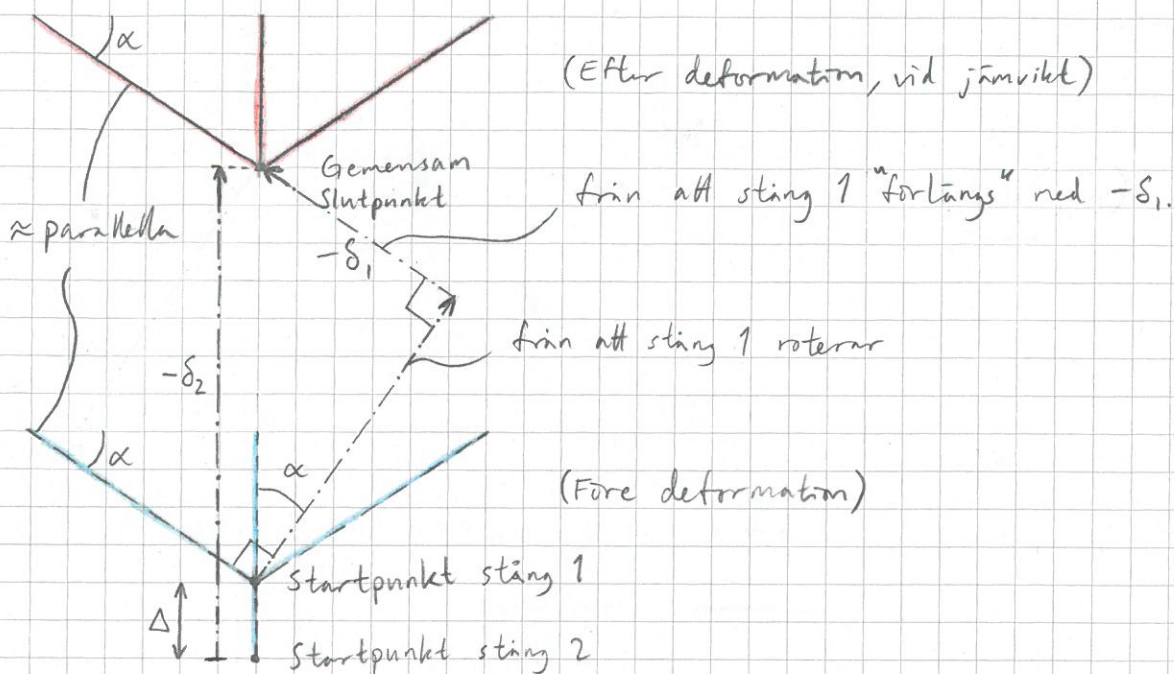 α
(Efter deformation, vid jämvikt)
Gemensam
Slutpunkt
från att stång 1 "förlängs" med -δ₁.
≈ parallella
-δ₁
från att stång 1 roterar
-δ₂
α
α
(Före deformation)
Startpunkt stång 1
Δ
Startpunkt stång 2